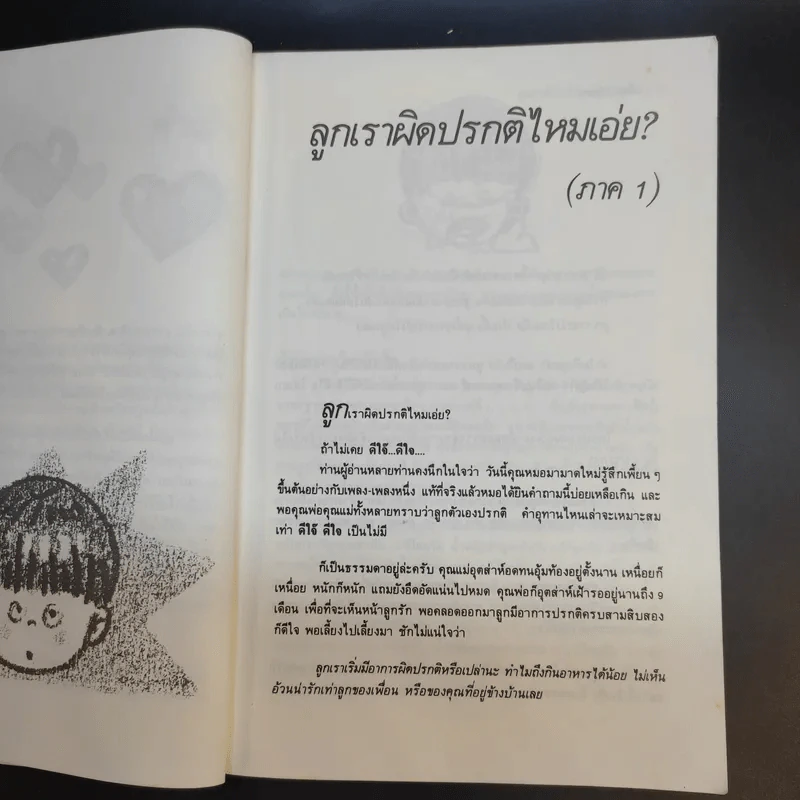 ลูกเราผิดปรกติไหมเอ่ย?
(ภาค 1)
ลูกเราผิดปรกติไหมเอ่ย?
ถ้าไม่เคย ดีใจ๊...ดีใจ....
ท่านผู้อ่านหลายท่านคงนึกในใจว่า วันนี้คุณหมอมามาดใหม่รู้สึกเพี้ยน ๆ
ขึ้นต้นอย่างกับเพลง-เพลงหนึ่ง แท้ที่จริงแล้วหมอได้ยินคำถามนี้บ่อยเหลือเกิน และ
พอคุณพ่อคุณแม่ทั้งหลายทราบว่าลูกตัวเองปรกติ คำอุทานไหนเล่าจะเหมาะสม
เท่า ดีใจ๊ ดีใจ เป็นไม่มี
ก็เป็นธรรมดาอยู่ล่ะครับ คุณแม่อุตส่าห์อดทนอุ้มท้องอยู่ตั้งนาน เหนื่อยก็
เหนื่อย หนักก็หนัก แถมยังอึดอัดแน่นไปหมด คุณพ่อก็อุตส่าห์เฝ้ารออยู่นานถึง 9
เดือน เพื่อที่จะเห็นหน้าลูกรัก พอคลอดออกมาลูกมีอาการปรกติครบสามสิบสอง
ก็ดีใจ พอเลี้ยงไปเลี้ยงมา ชักไม่แน่ใจว่า
ลูกเราเริ่มมีอาการผิดปรกติหรือเปล่านะ ทำไมถึงกินอาหารได้น้อย ไม่เห็น
อ้วนน่ารักเท่าลูกของเพื่อน หรือของคุณที่อยู่ข้างบ้านเลย